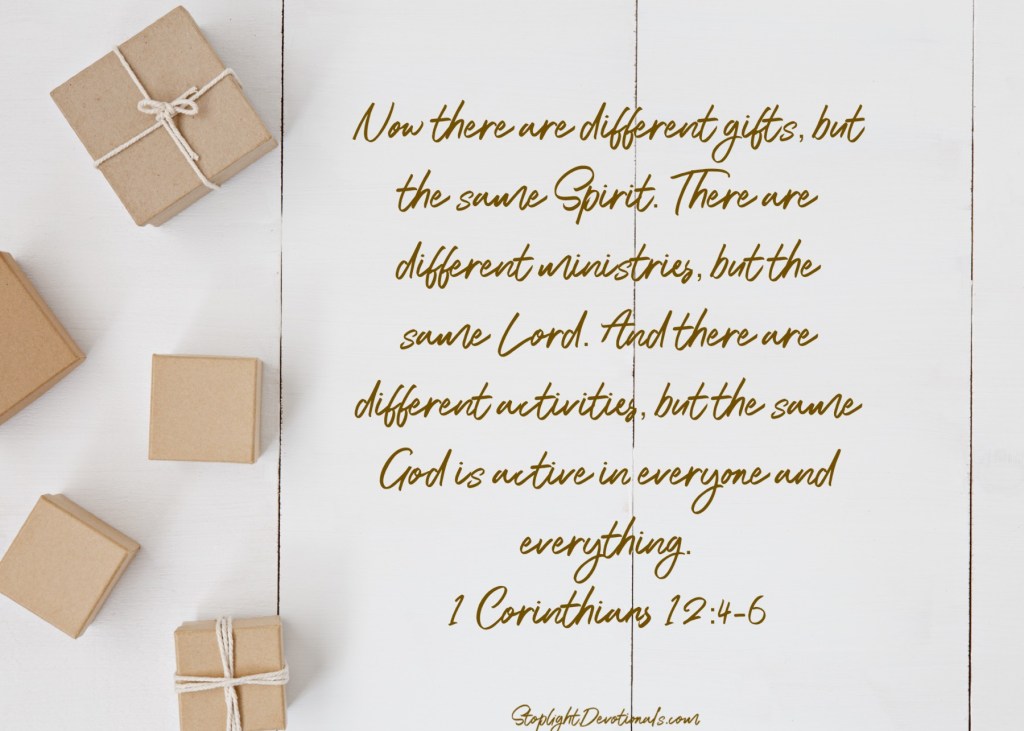 Now there are different gifts, but
the same Spirit. There are
different ministries, but the
same Lord. And there are
different activities, but the same
God is active in everyone and
everything.
1 Corinthians 12:4-6
StoplightDevotionals.com